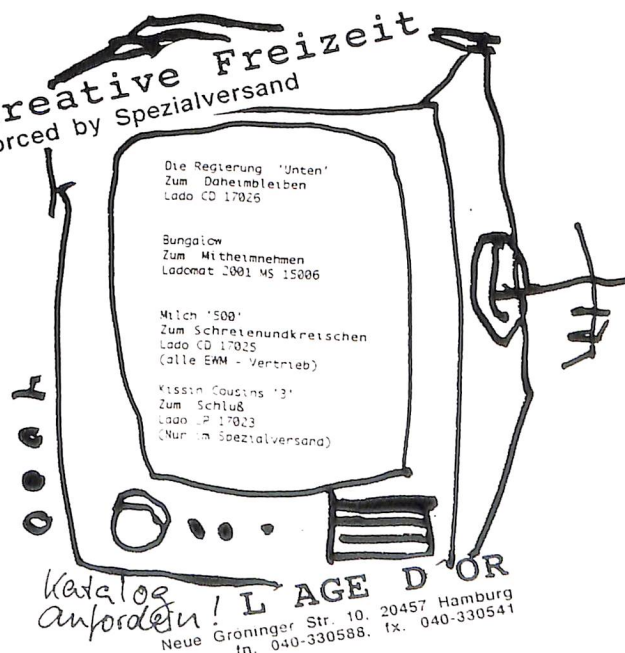 reative Freizeit
orced by Spezialversand
Die Regierung 'Unten'
Zum Daheimbleiben
Lado CD 17026
Bungalow
Zum Mitheimnehmen
Ladomat 2001 MS 15006
Milch '500'
Zum Schreienundkreischen
Lado CD 17025
(alle EWM - Vertrieb)
Kissin Cousins '3'
Zum Schluß
Lado LP 17023
(Nur im Spezialversand)
Katalog
anfordern!
L AGE D OR
Neue Gröninger Str. 10. 20457 Hamburg
fn. 040-330588. fx. 040-330541